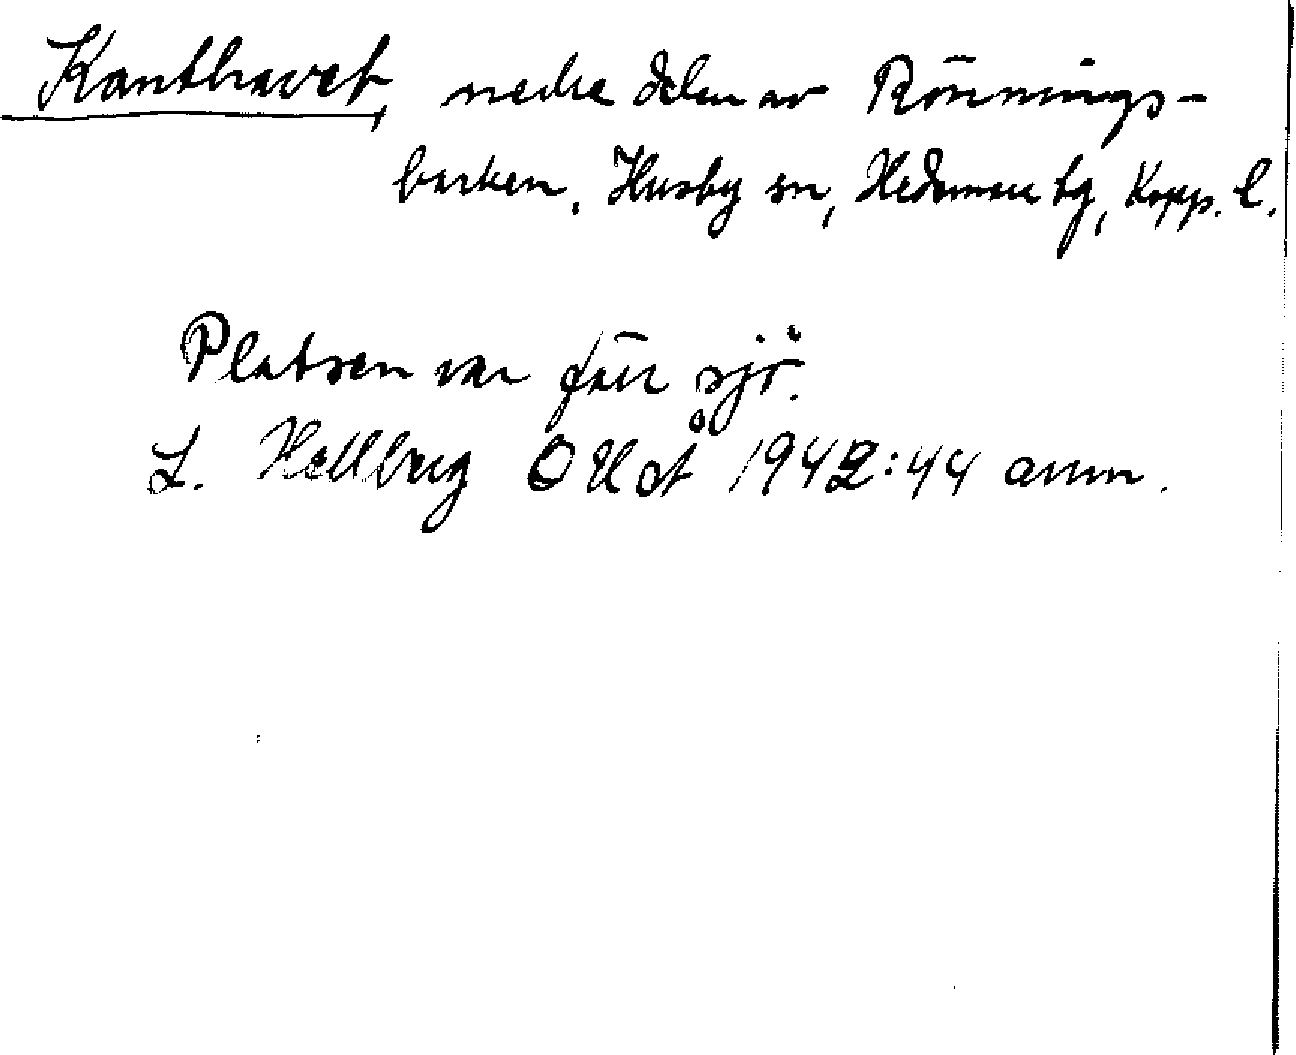 Kanthavet, nedre delen av Rönnings-
backen. Husby sn, Hedemora tg, Kopp. l.
Platsen var förr sjö.
L. Hellberg OUÅ 1942:44 anm.